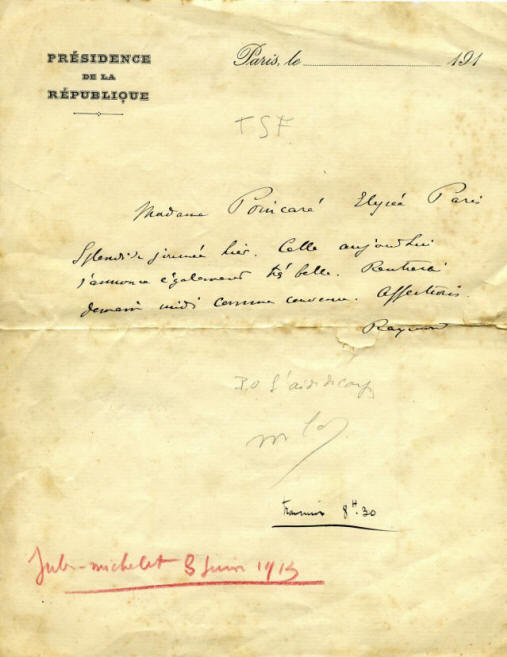 PRÉSIDENCE
DE LA
RÉPUBLIQUE
Paris, le 191
TSF
Madame Poincaré Elysée Paris
Splendide journée hier. Celle aujourd'hui
s'annonce également très belle. Rentrerai
demain midi comme convenu. Affections.
Raymond
P.O L'aide de camp
transmis 8H.30
Jules-michelet 3 Juin